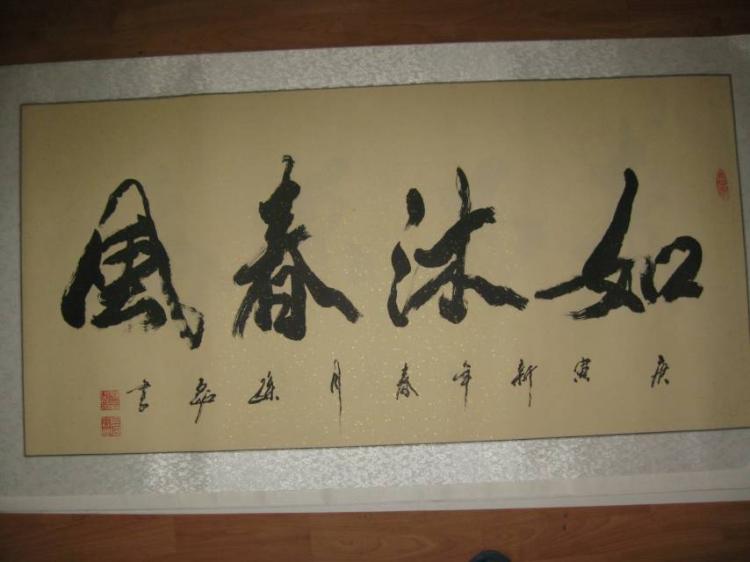 如沐春风
庚寅新年春月孫書